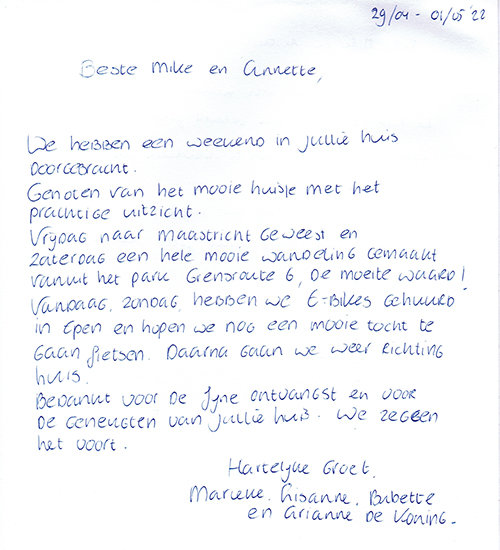 29/04 - 01/05 '22
Beste Mike en Annette,
We hebben een weekend in jullie huis
doorgebracht.
Genoten van het mooie huisje met het
prachtige uitzicht.
Vrijdag naar Maastricht geweest en
zaterdag een hele mooie wandeling gemaakt
vanuit het park Grensroute 6, de moeite waard!
Vandaag, zondag, hebben we E-Bikes gehuurd
in Epen en hopen we nog een mooie tocht te
gaan fietsen. Daarna gaan we weer richting
huis.
Bedankt voor de fijne ontvangst en voor
de geneugten van jullie huis. We zeggen
het voort.
Hartelijke Groet,
Marieke, Lisanne, Babette
en Arianne de Koning.